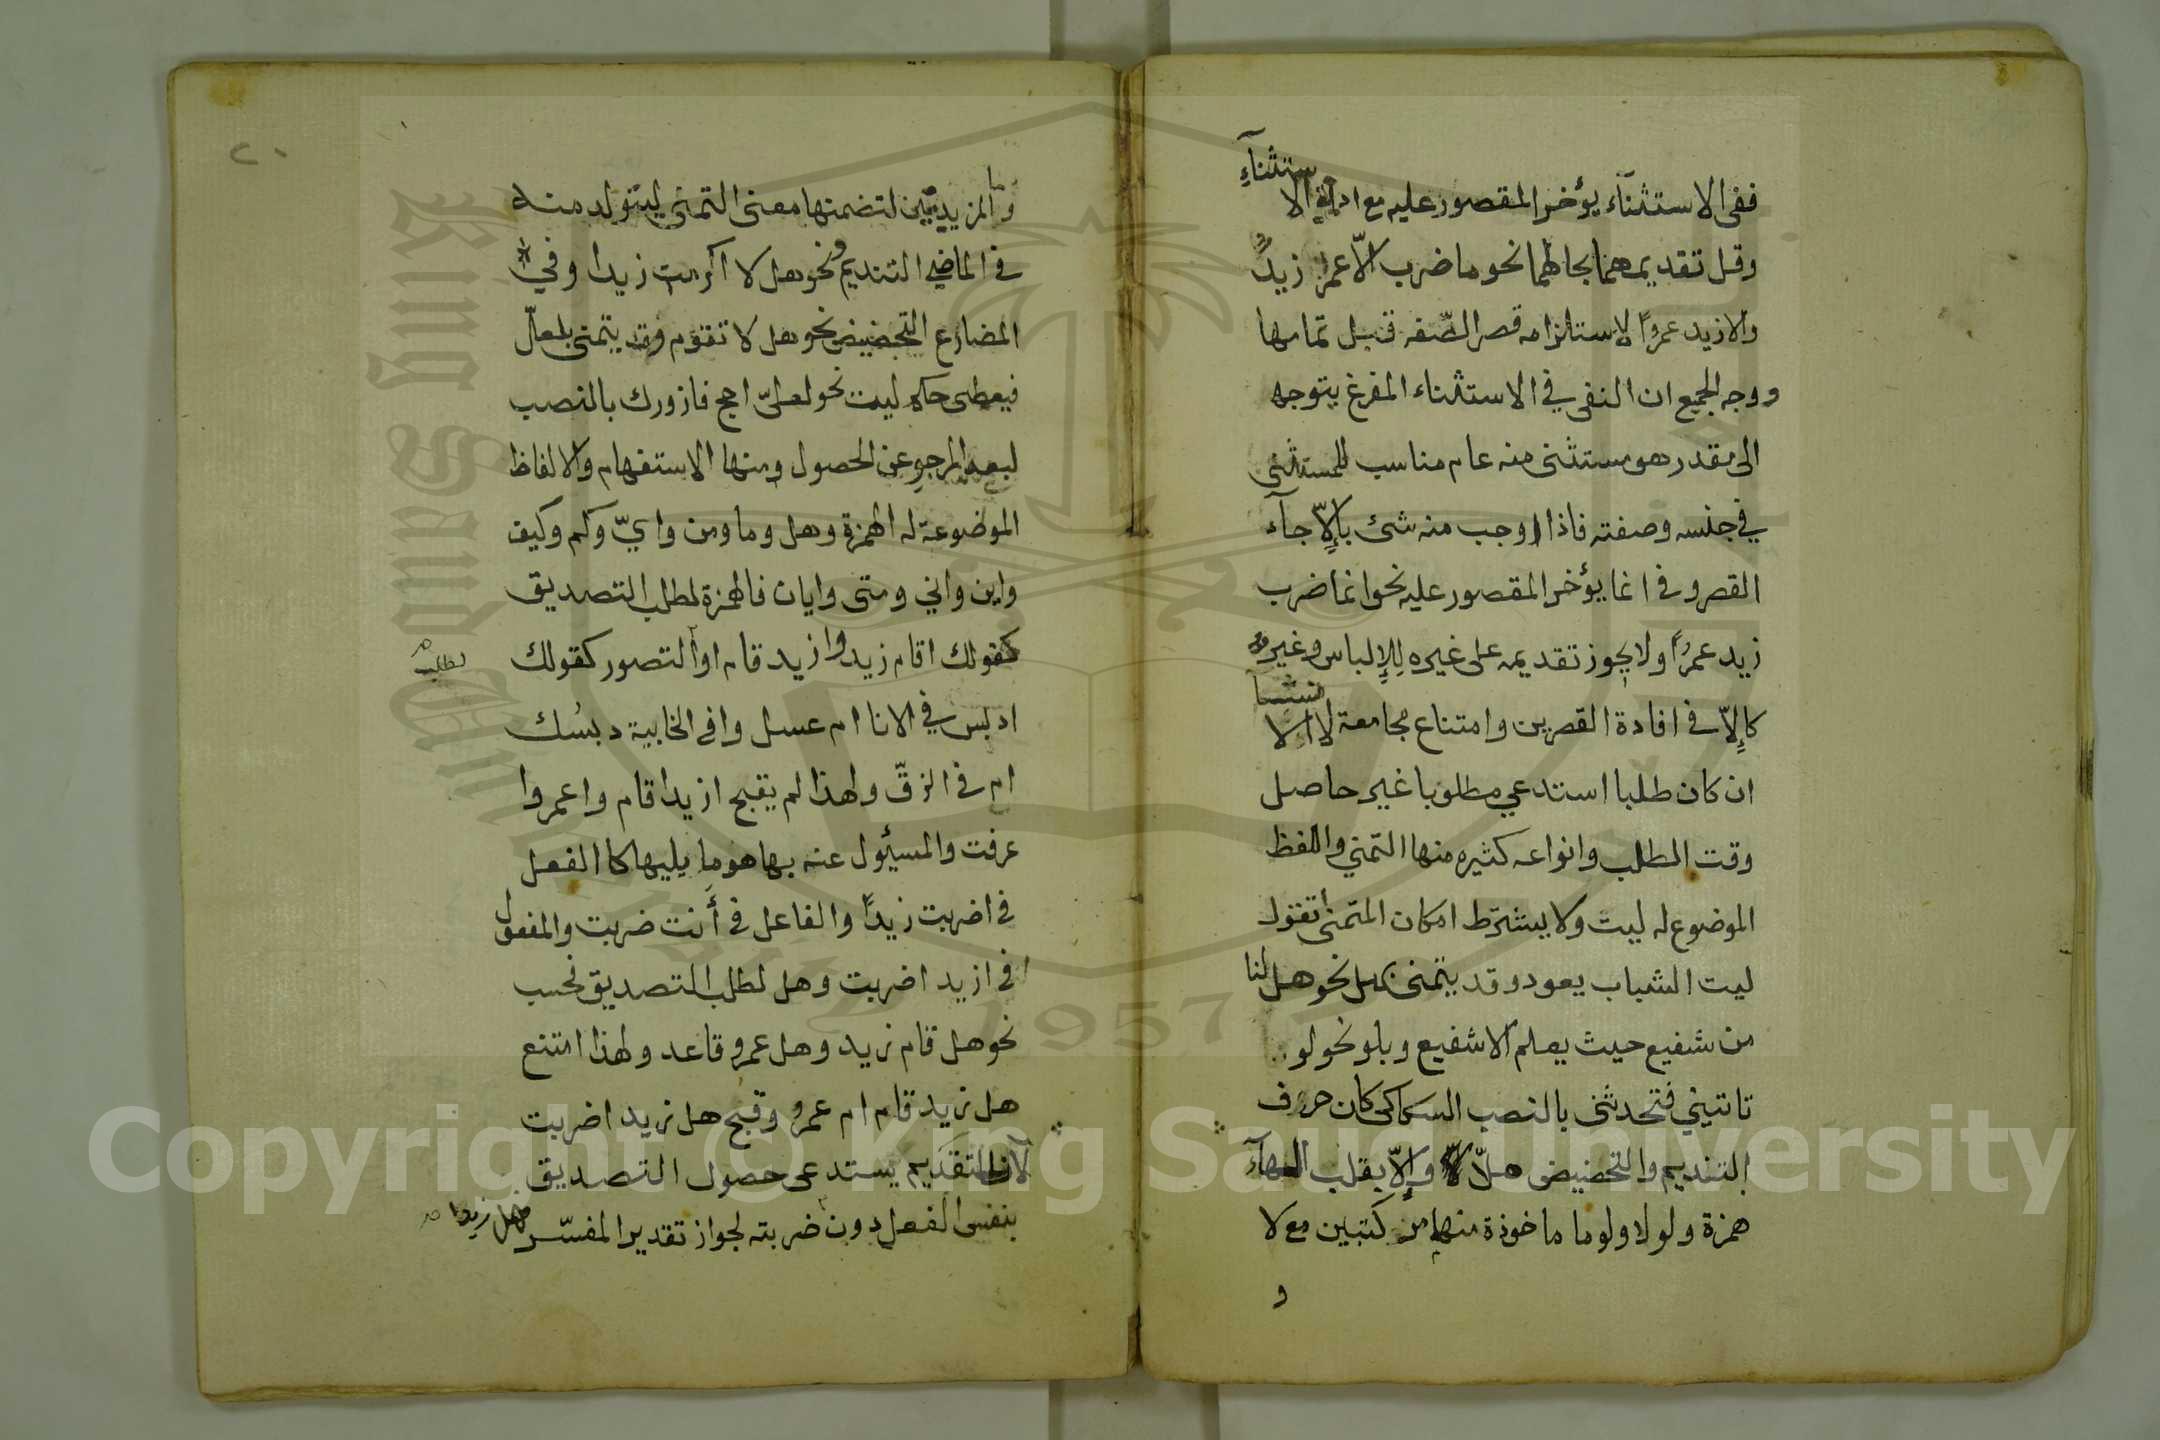 ففى الاستثنآء يؤخر المقصور عليه مع اداة الاستثنآء
وقل تقديمهما بحالهما نحو ما ضرب الّا عمرا زيدٌ
والا زيد عمرًوا لاستلزامه قصر الصّفه قبل تمامها
ووجه الجميع ان النفى في الاستثناء المفرغ يتوجه
الى مقدر هو مستثنى منه عام مناسب للمستثنى
في جنسه وصفته فاذا اوجب منه شئ بإلّا جآء
القصر و فى انما يؤخر المقصور عليه نحو انما ضرب
زيد عمرًوا ولا يجوز تقديمه على غيره لِلإلباس وغير
كإلّا فى افادة القصرين وامتناع مجامعة لا الانشآ
ان كان طلبا استدعي مطلوبا غير حاصل
وقت الطلب وانواعه كثيره منها التمني واللفظ
الموضوع له ليت ولا يشترط امكان المتمنى تقول
ليت الشباب يعود وقد يتمنى بهل نحو هل لنا
من شفيع حيث يعلم الا شفيع وبلو نحو لو
تاتيني فتحدثنى بالنصب السكاكى كان حروف
التنديم والتحضيض هلّا وإلّا بقلب الهآء
همزة ولولا ولوما ماخوذة منهما مركبتين مع لا
و
٢٠
وما المزيدتين لتضمنها معنى التمنى ليتولد منه
فى الماضي التنديم نحو هلا اكرمت زيدا وفي
المضارع التحضيض نحو هلا تقوم وقد يتمنى بلعلّ
فيعطى حكم ليت نحو لعلّى احج فازورك بالنصب
لبعد المرجو عن الحصول ومنها الاستفهام والالفاظ
الموضوعة له الهمزة وهل وما ومن وايّ وكم وكيف
واين واني ومتى وايان فالهمزة لطلب التصديق
كقولك اقام زيد وازيد قام او التصور كقولك
لطلب
ادبس في الانا ام عسل وافى الخابية دبسُك
ام فى الزقّ ولهذا لم يقبح ازيدا قام واعمروا
عرفت والمسئول عنه بها هو ما يليها كا الفعل
فى اضربت زيدًا والفاعل فى أنت ضربت والمفعول
فى ازيد اضربت وهل لطلب التصديق فحسب
نحو هل قام زيد وهل عمرو قاعد ولهذا امتنع
هل زيد قام ام عمرو وقبح هل زيد اضربت
لان التقديم يستدعى حصول التصديق
بنفس الفعل دون ضربته لجواز تقدير المفسّر
هل زيدا